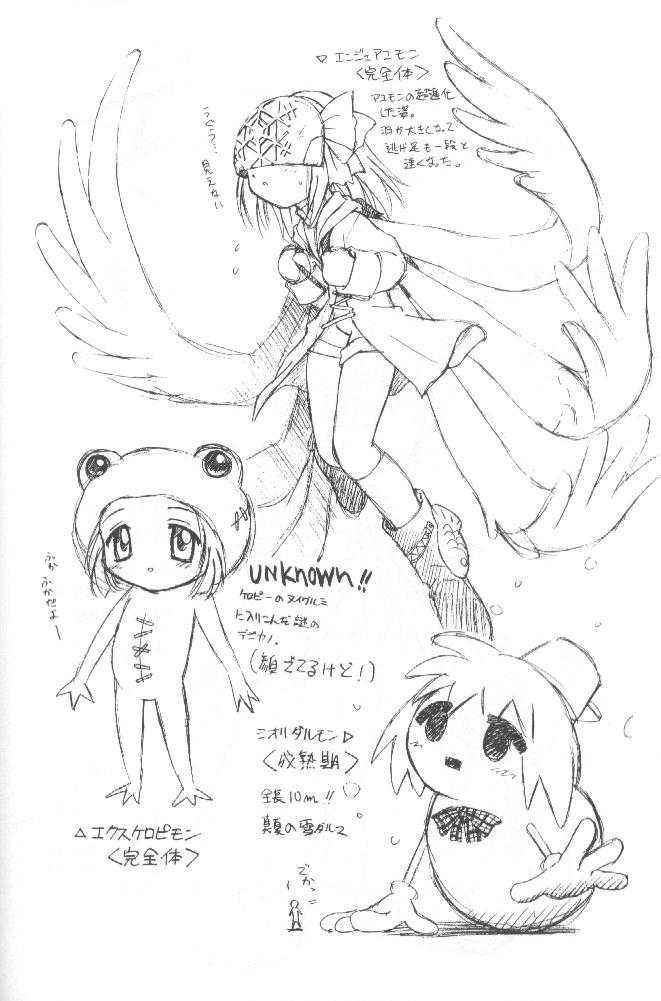 ▽ エンジェアユモン
<完全体>
アユモンの超進化
した姿。
羽が大きくなって
逃げ足も一段と
速くなった。
うぐぅ… 見えない
UNKNOWN!!
ケロピーのヌイグルミ
に入りこんだ謎の
デジカノ。
(顔でてるけど!)
ぶか
ぶかだよー
△エクスケロピモン
<完全体>
ミオリダルモン ▷
<成熟期>
全長10m!!
真夏の雪ダルマ
でかっ